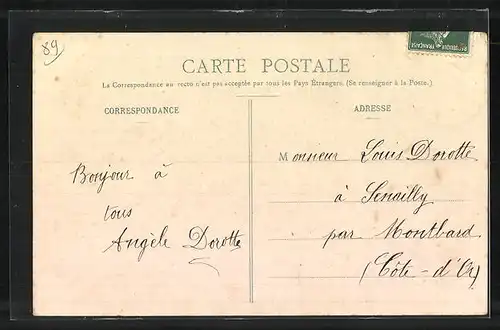 89
CARTE POSTALE
La Correspondance au recto n'est pas acceptée par tous les Pays Étrangers. (Se renseigner à la Poste.)
CORRESPONDANCE
ADRESSE
Bonjour à
tous
Angèle Dorotte
Monsieur Louis Dorotte
à Senailly
par Montbard
(Côte-d'Or)